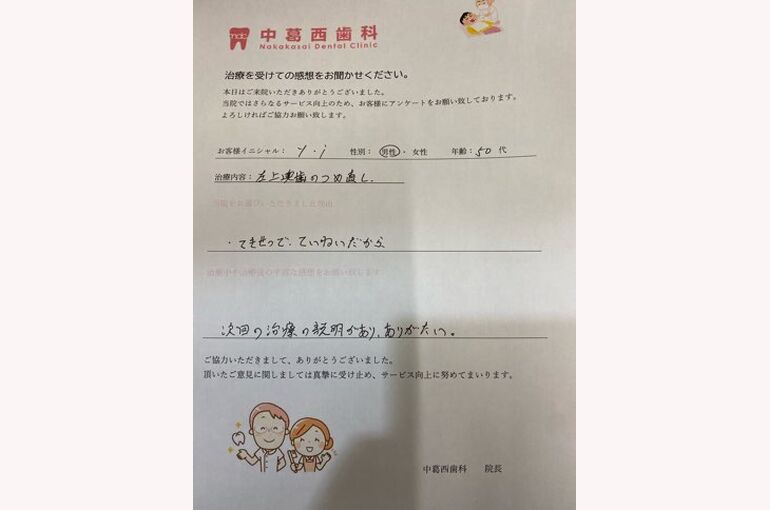 中葛西歯科
Nakakasai Dental Clinic
治療を受けての感想をお聞かせください。
本日はご来院いただきありがとうございました。
当院ではさらなるサービス向上のため、お客様にアンケートをお願い致しております。
よろしければご協力お願い致します。
お客様イニシャル： y・i 性別： 男性・ 女性 年齢：50 代
治療内容：左上奥歯のつめ直し.
当院をお選びいただきました理由
・てきせつで、ていねいだから
治療中や治療後の率直な感想をお願い致します
次回の治療の説明があり、ありがたい。
ご協力いただきまして、ありがとうございました。
頂いたご意見に関しましては真摯に受け止め、サービス向上に努めてまいります。
中葛西歯科 院長